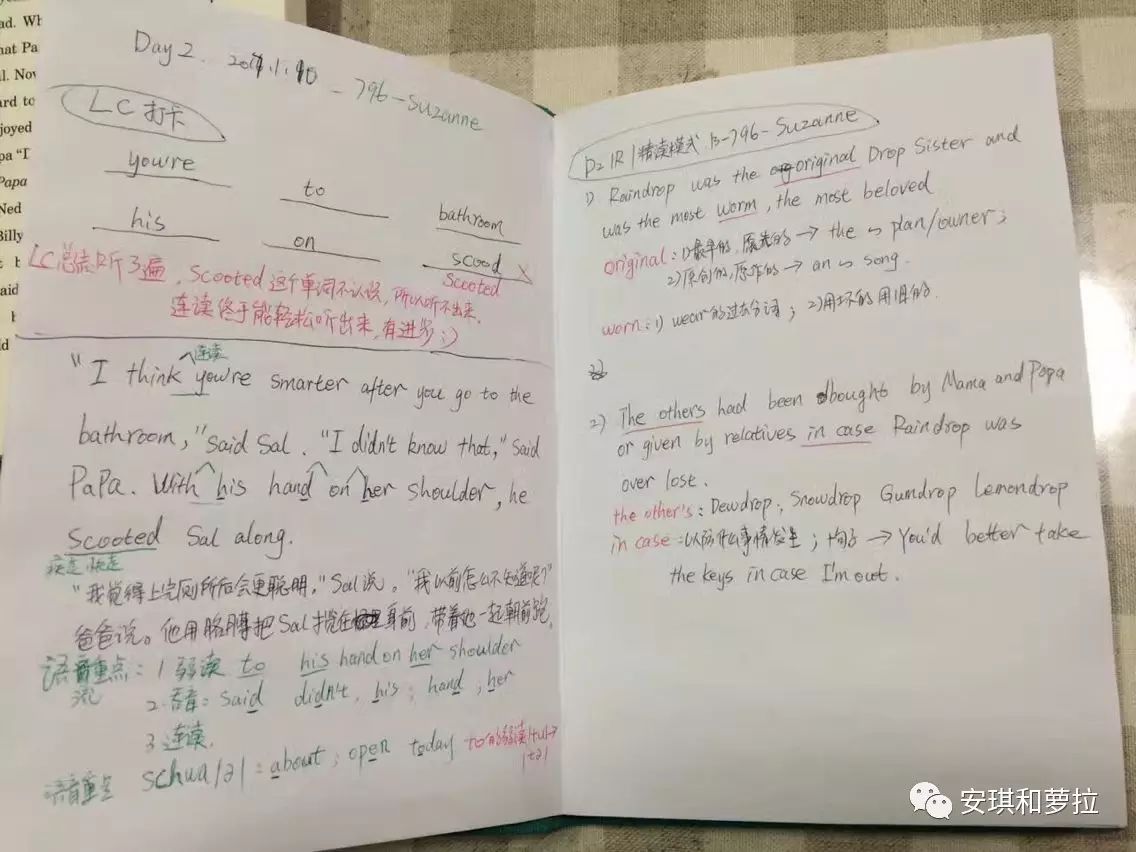 ad. Wh
hat Pa
l. Nov
ard to
joyed
pa "I
Papa
Ned
Billy
said
ld
Day 2. 2017.1.10 - 796-Suzanne
LC 打卡
you're
to
bathroom
his
on
scood X
Scooted
LC总结只听了3遍，Scooted这个单词不认识，所以听不出来，
连读终于能轻松听出来，有进步:)
连读
"I think you're smarter after you go to the
bathroom," said Sal. "I didn't know that," said
PaPa. With his hand on her shoulder, he
scooted Sal along.
疾走 快走
"我觉得上完厕所后会更聪明，"Sal说。"我以前怎么不知道呢？"
爸爸说。他用胳膊把Sal揽在身前，带着她一起朝前跑。
语流重点：1 弱读 to his hand on her shoulder
2. 吞音：said didn't, his; hand; her
3 连读.
语音重点 schwa |ə| = about; open today to的弱读|tu|→|tə|
D2 IR 精读模式 B-796-Suzanne
1) Raindrop was the original Drop Sister and
was the most worn, the most beloved
original：1)最早的，原先的 → the ~ plan/owner;
2)原创的，原作的 → an ~ song.
worn：1) wear的过去分词；2)用坏的 用旧的.
2) The others had been bought by Mama and Papa
or given by relatives in case Raindrop was
over lost.
the other's：Dewdrop, Snowdrop Gumdrop Lemondrop
in case：以防什么事情发生；句子 → You'd better take
the keys in case I'm out.
安琪和萝拉